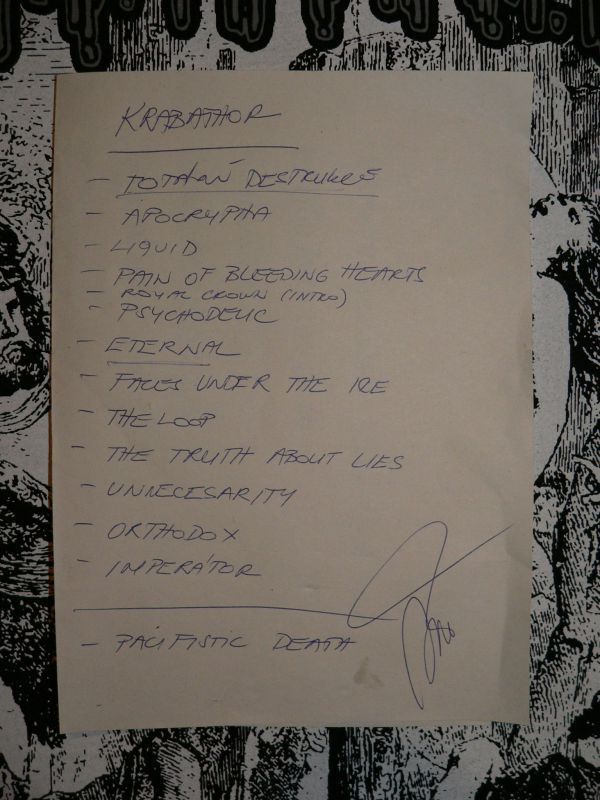 KRABATHOR
- TOTÁLNÍ DESTRUKCE
- APOCRYPHA
- LIQUID
- PAIN OF BLEEDING HEARTS
- ROYAL CROWN (INTRO)
- PSYCHODELIC
- ETERNAL
- FACES UNDER THE ICE
- THE LOOP
- THE TRUTH ABOUT LIES
- UNNECESARITY
- ORTHODOX
- IMPERÁTOR
- PACIFISTIC DEATH